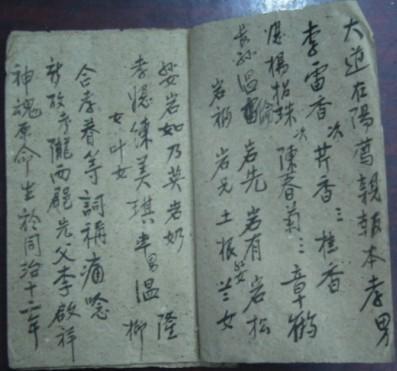 大道在陽薦親報本孝男
李雷香次芹香三桂香
媳楊招珠次陳春菊三章鶴
長孫温 岩先岩有岩松
岩楊岩元土根 兰女
岩如乃英岩奶
孝媳陳美琪率男温隆
女叶女 柳
合孝眷等詞稱痛念
新故考隴西郡先父李啟祥
神魂原命生於同治十二年